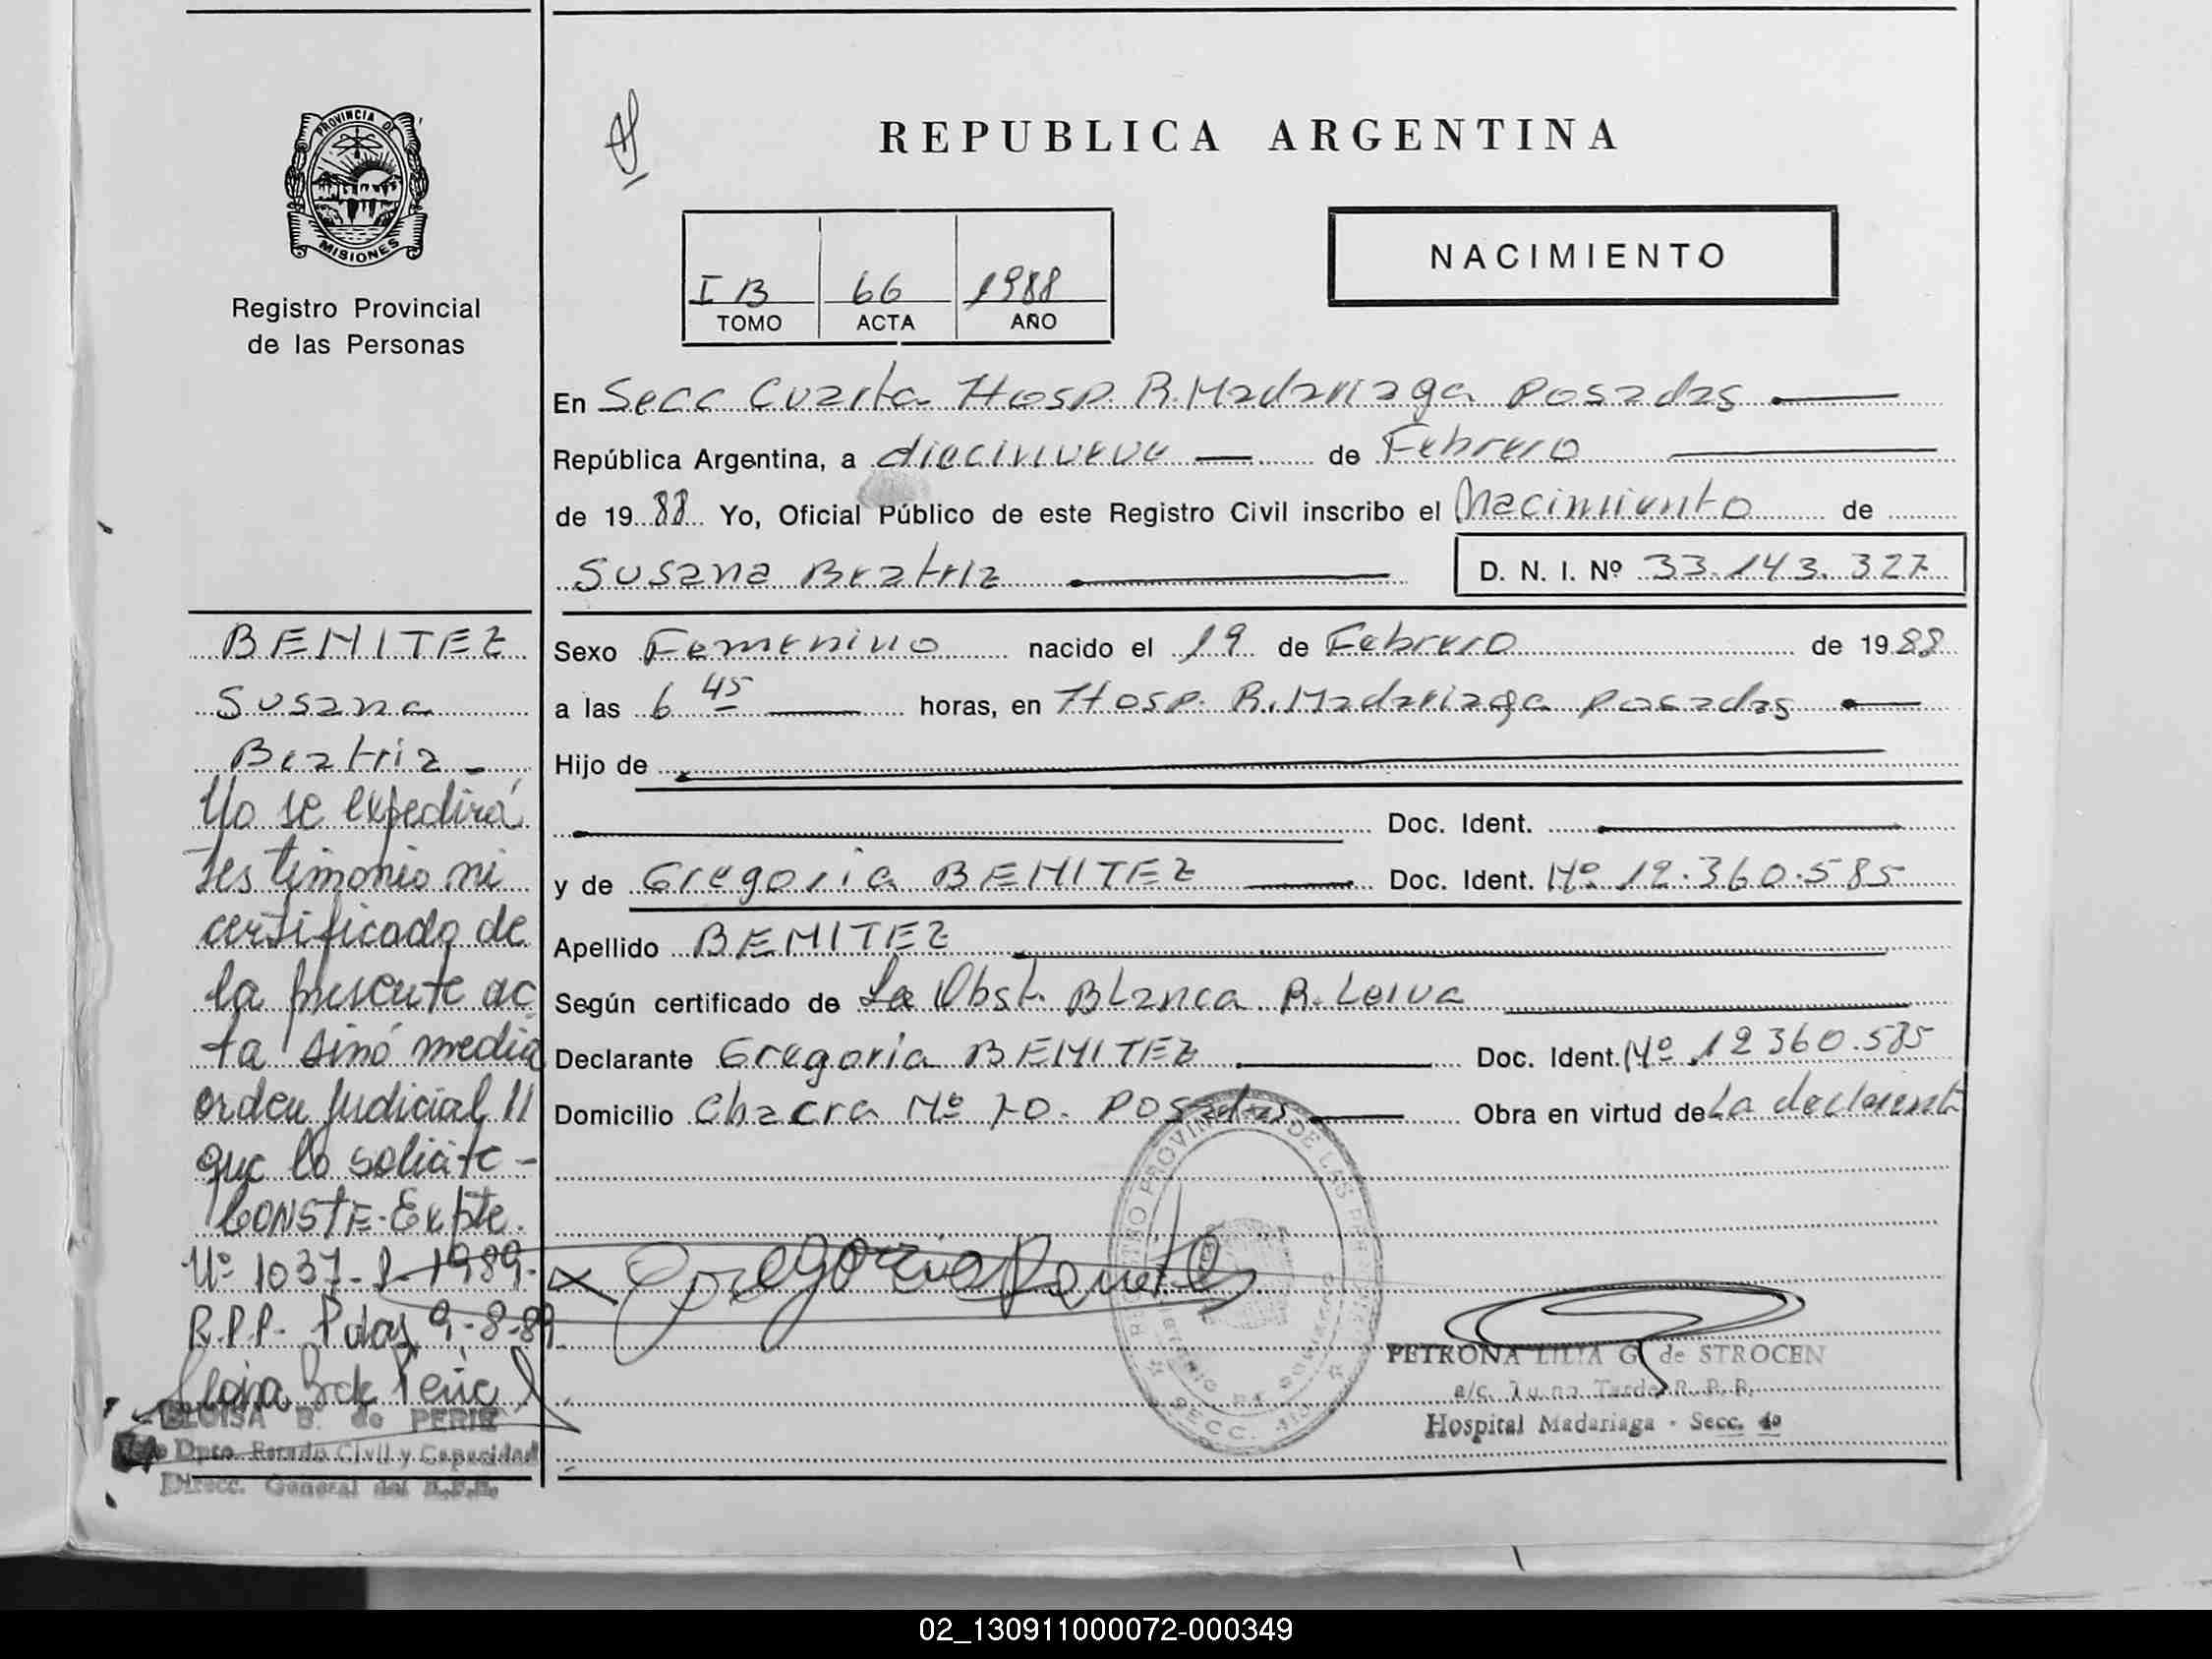 PROVINCIA DE
MISIONES
Registro Provincial
de las Personas
REPUBLICA ARGENTINA
NACIMIENTO
I B 66 1988
TOMO ACTA AÑO
En Secc Cuarta Hosp. R. Madariaga Posadas
República Argentina, a diecinueve de Febrero
de 19 88 Yo, Oficial Público de este Registro Civil inscribo el Nacimiento de
Susana Beatriz D. N. I. Nº 33.143.327
Sexo Femenino nacido el 19 de Febrero de 19 88
a las 6 45 horas, en Hosp. R. Madariaga Posadas
Hijo de
Doc. Ident.
y de Gregoria BENITEZ Doc. Ident. Nº 12.360.585
Apellido BENITEZ
Según certificado de La Obst. Blanca R. Leiva
Declarante Gregoria BENITEZ Doc. Ident. Nº 12 360.585
Domicilio Chacra Nº 70. Posadas Obra en virtud de La declarent
BENITEZ
Susana
Beatriz
No se expedirá
testimonio ni
certificado de
la presente ac
ta sinó media
orden judicial
que lo solicite -
CONSTE - Expte.
Nº 1037 - 1989 -
R.P.P. - Pdas, 9-8-89
ELOISA B. de PERIE
Dpto. Estado Civil y Capacidad
Direcc. General del R.P.P.
Gregoria Benitez
REGISTRO PROVINCIAL DE LAS PERSONAS
MINISTERIO DE GOBIERNO
SECC. 4ta
PETRONA LILIA G. de STROCEN
a/c. Turno Tarde R. P. P.
Hospital Madariaga - Secc. 4a
02_130911000072-000349